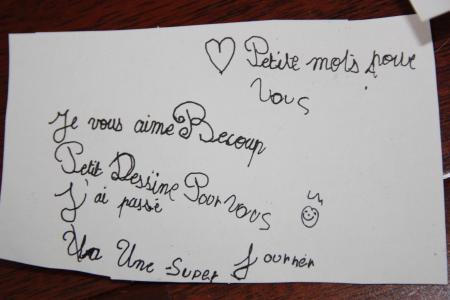 ♡ Petite mots pour
vous
Je vous aime Becoup
Petit Dessine Pour vous
J'ai passé
Un Une super Journer